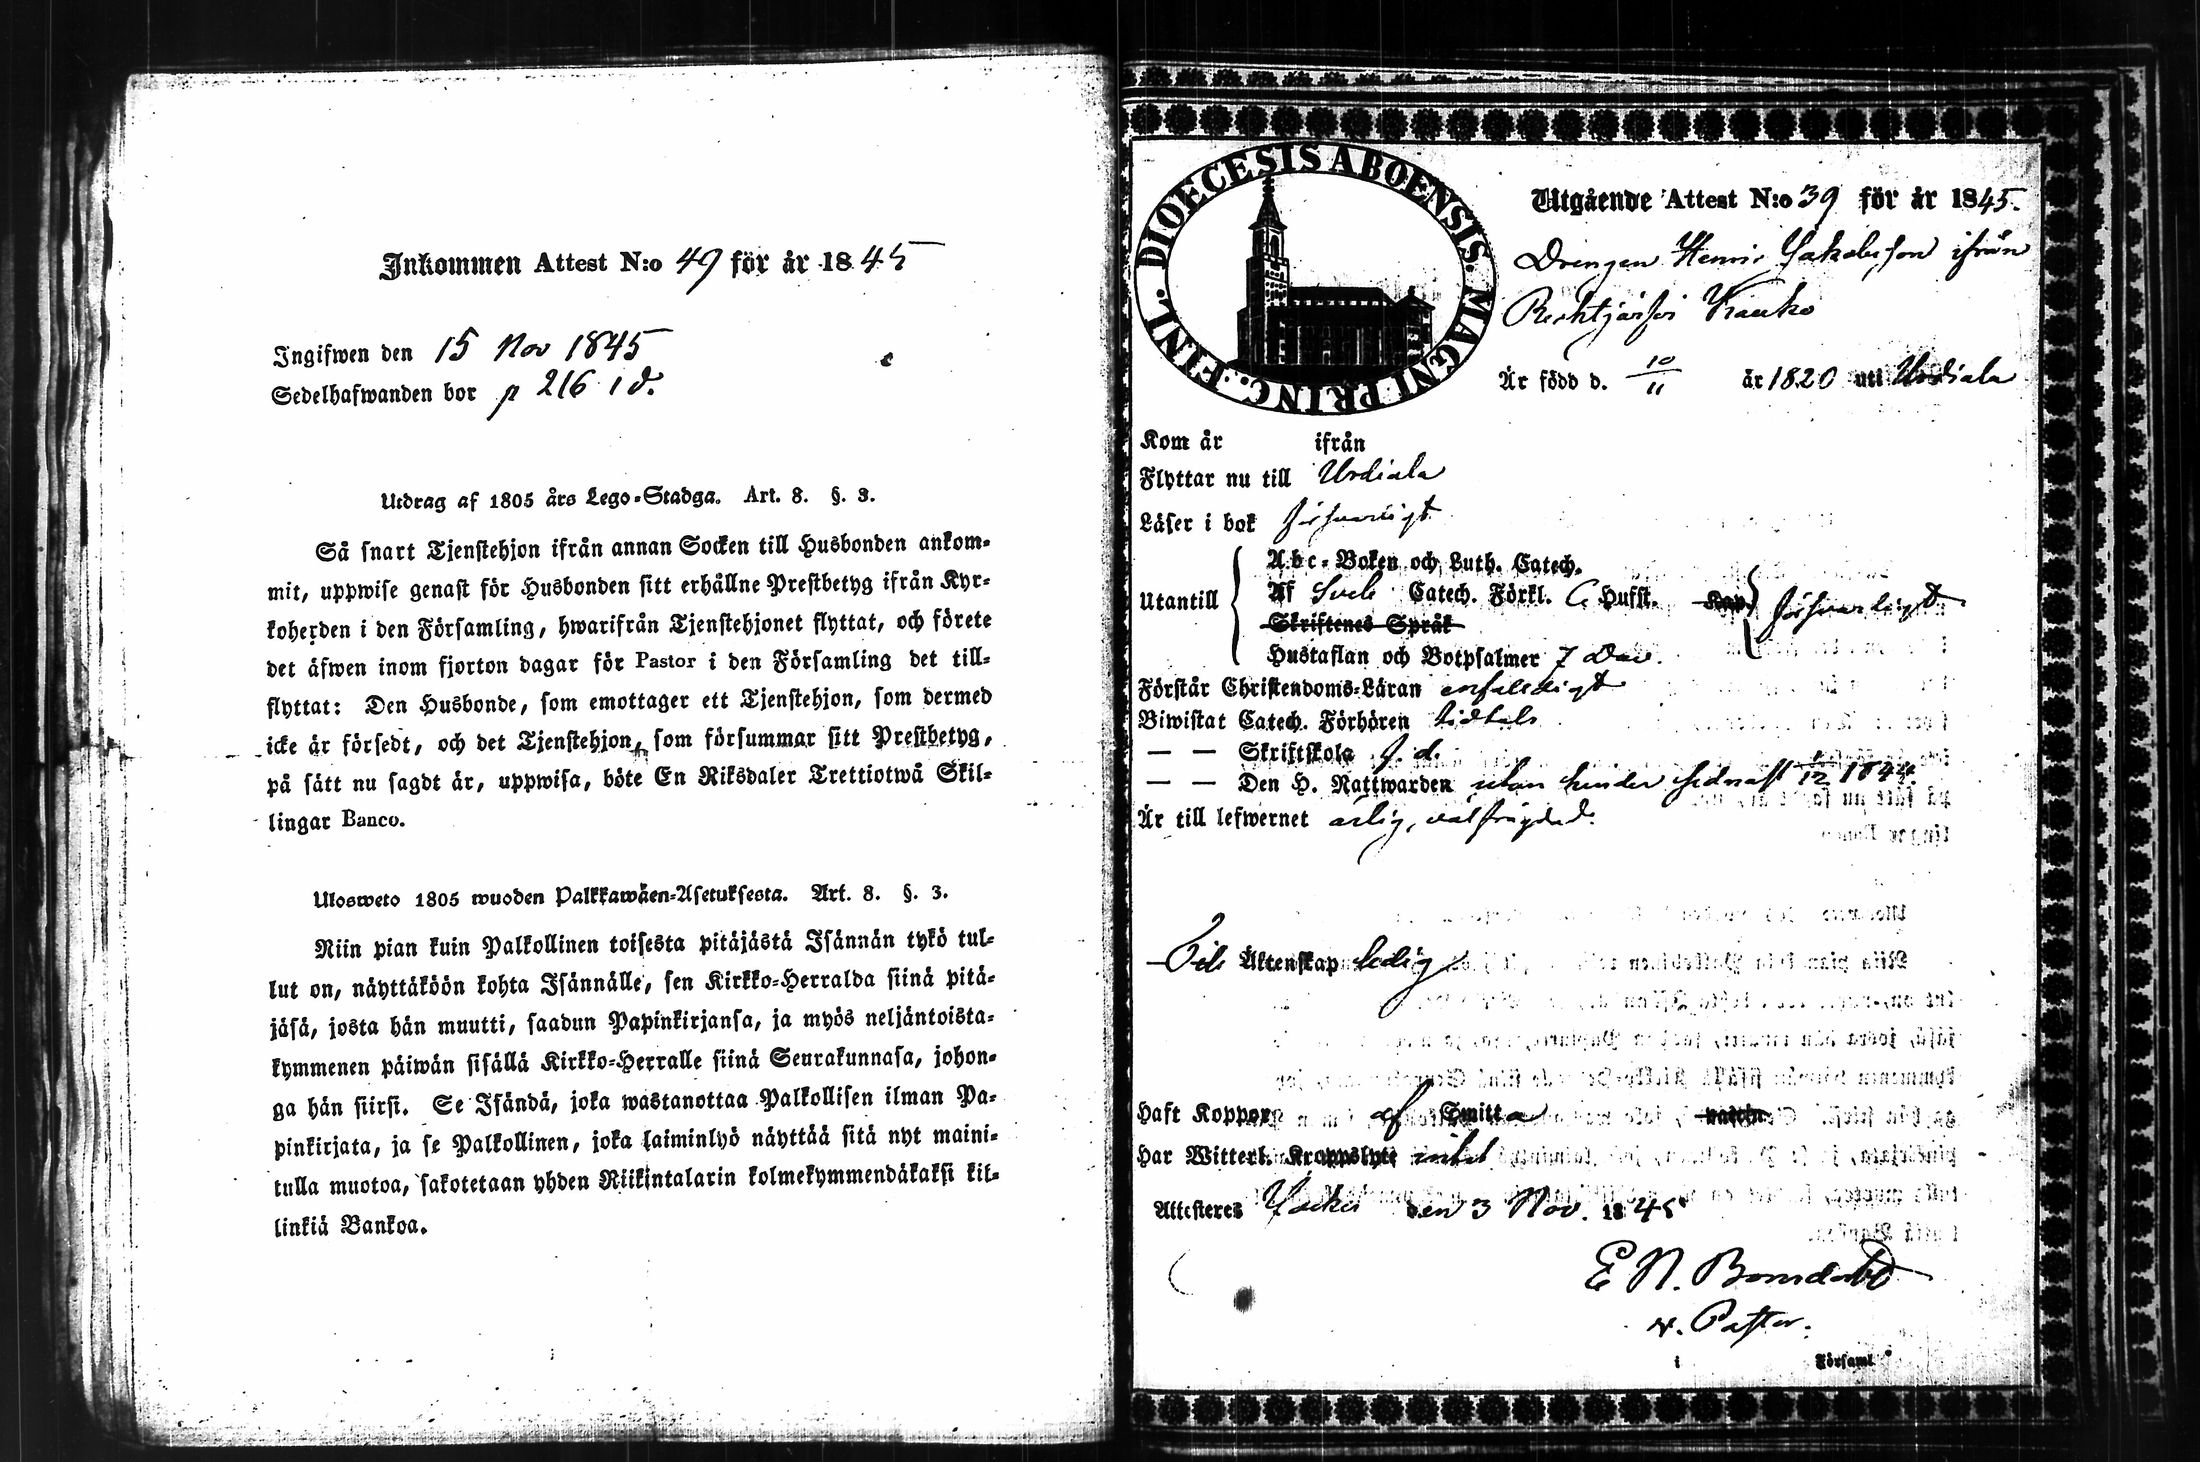 Inkommen Attest N:o 49 för år 1845
Ingifwen den 15 Nov 1845
Sedelhafwanden bor p 216 i d.
Utdrag af 1805 års Lego-Stadga. Art. 8. §. 3.
Så snart Tjenstehjon ifrån annan Socken till Husbonden ankom-
mit, uppwise genast för Husbonden sitt erhållne Prestbetyg ifrån Kyr-
koherden i den Församling, hwarifrån Tjenstehjonet flyttat, och förete
det äfwen inom fjorton dagar för Pastor i den Församling det till-
flyttat: Den Husbonde, som emottager ett Tjenstehjon, som dermed
icke är försedt, och det Tjenstehjon, som försummar sitt Prestbetyg,
på sätt nu sagdt är, uppwisa, böte En Riksdaler Trettiotwå Skil-
lingar Banco.
Ulosweto 1805 wuoden Palkkawäen-Asetuksesta. Art. 8. §. 3.
Niin pian kuin Palkollinen toisesta pitäjästä Isännän tykö tul-
lut on, näyttäköön kohta Isännälle, sen Kirkko-Herralda siinä pitä-
jäsä, josta hän muutti, saadun Papinkirjansa, ja myös neljäntoista-
kymmenen päiwän sisällä Kirkko-Herralle siinä Seurakunnasa, johon-
ga hän siirsi. Se Isändä, joka wastanottaa Palkollisen ilman Pa-
pinkirjata, ja se Palkollinen, joka laiminlyö näyttää sitä nyt maini-
tulla muotoa, sakotetaan yhden Riikintalarin kolmekymmendäkaksi kil-
linkiä Bankoa.
DIOECESIS ABOENSIS. MAGNI PRINC. FINL.
Utgående Attest N:o 39 för år 1845.
Drengen Henric Jakobsson ifrån
Krauko
Är född d. 10/11 år 1820 uti Urdiala
Kom år ifrån
Flyttar nu till Urdiala
Läser i bok försvarligt
Utantill
Abc-Boken och Luth. Catech.
Af Sveb Catech. Förkl. C Hufst. Kap. försvarligt
Skriftenes Språk
Hustaflan och Botpsalmer 7 Dav.
Förstår Christendoms-Läran enfaldigt
Biwistat Catech. Förhören
— — Skriftskola
— — Den H. Nattwarden utan hinder sednast 1/12 1844.
Är till lefwernet ärlig, välfrägdad.
Till Äktenskap ledig
Haft Koppor af Smitta vaccin
Har Witterl. Kroppslyte intet
Attesteres Jockis den 3 Nov. 1845
E N. Bonsdorff
v. Pastor.
i Församl.